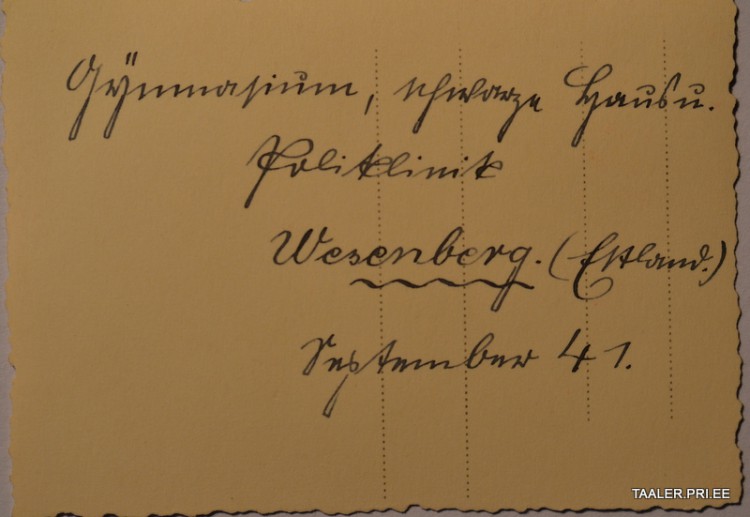 Gÿmnasium, schwarze Haus u.
Poliklinik
Wesenberg. (Estland.)
September 41.
TAALER.PRI.EE